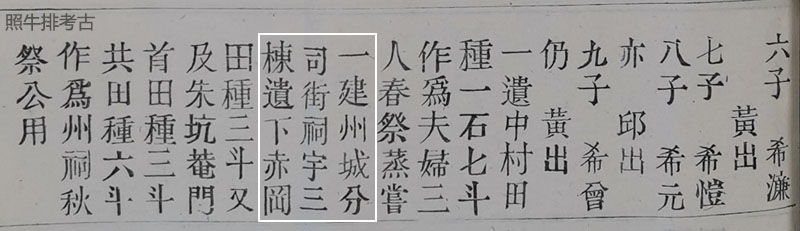 照牛排考古
六子 希濂
黃出
七子 希愷
八子 希元
亦 邱出
九子 希曾
仍 黃出
一遺中村田
種一石七斗
作爲夫婦三
人春祭蒸嘗
一建州城分
司街祠宇三
棟遺下赤岡
田種三斗又
及朱坑菴門
首田種三斗
共田種六斗
作爲州祠秋
祭公用